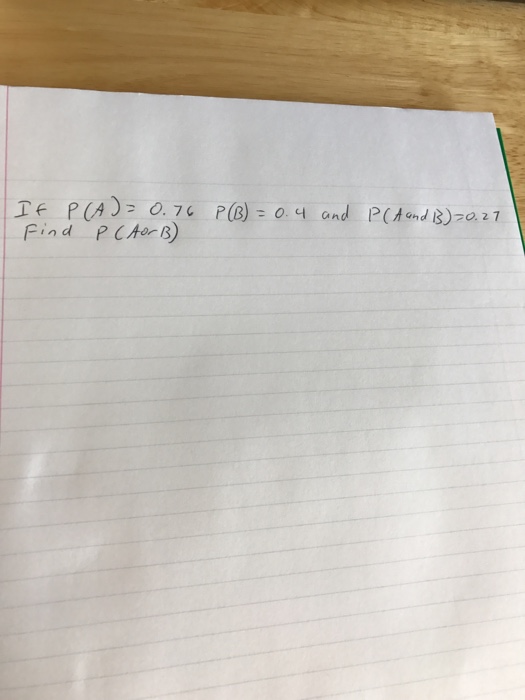 If P(A) = 0.76 P(B) = 0.4 and P(A and B)=0.27
Find P(A or B)